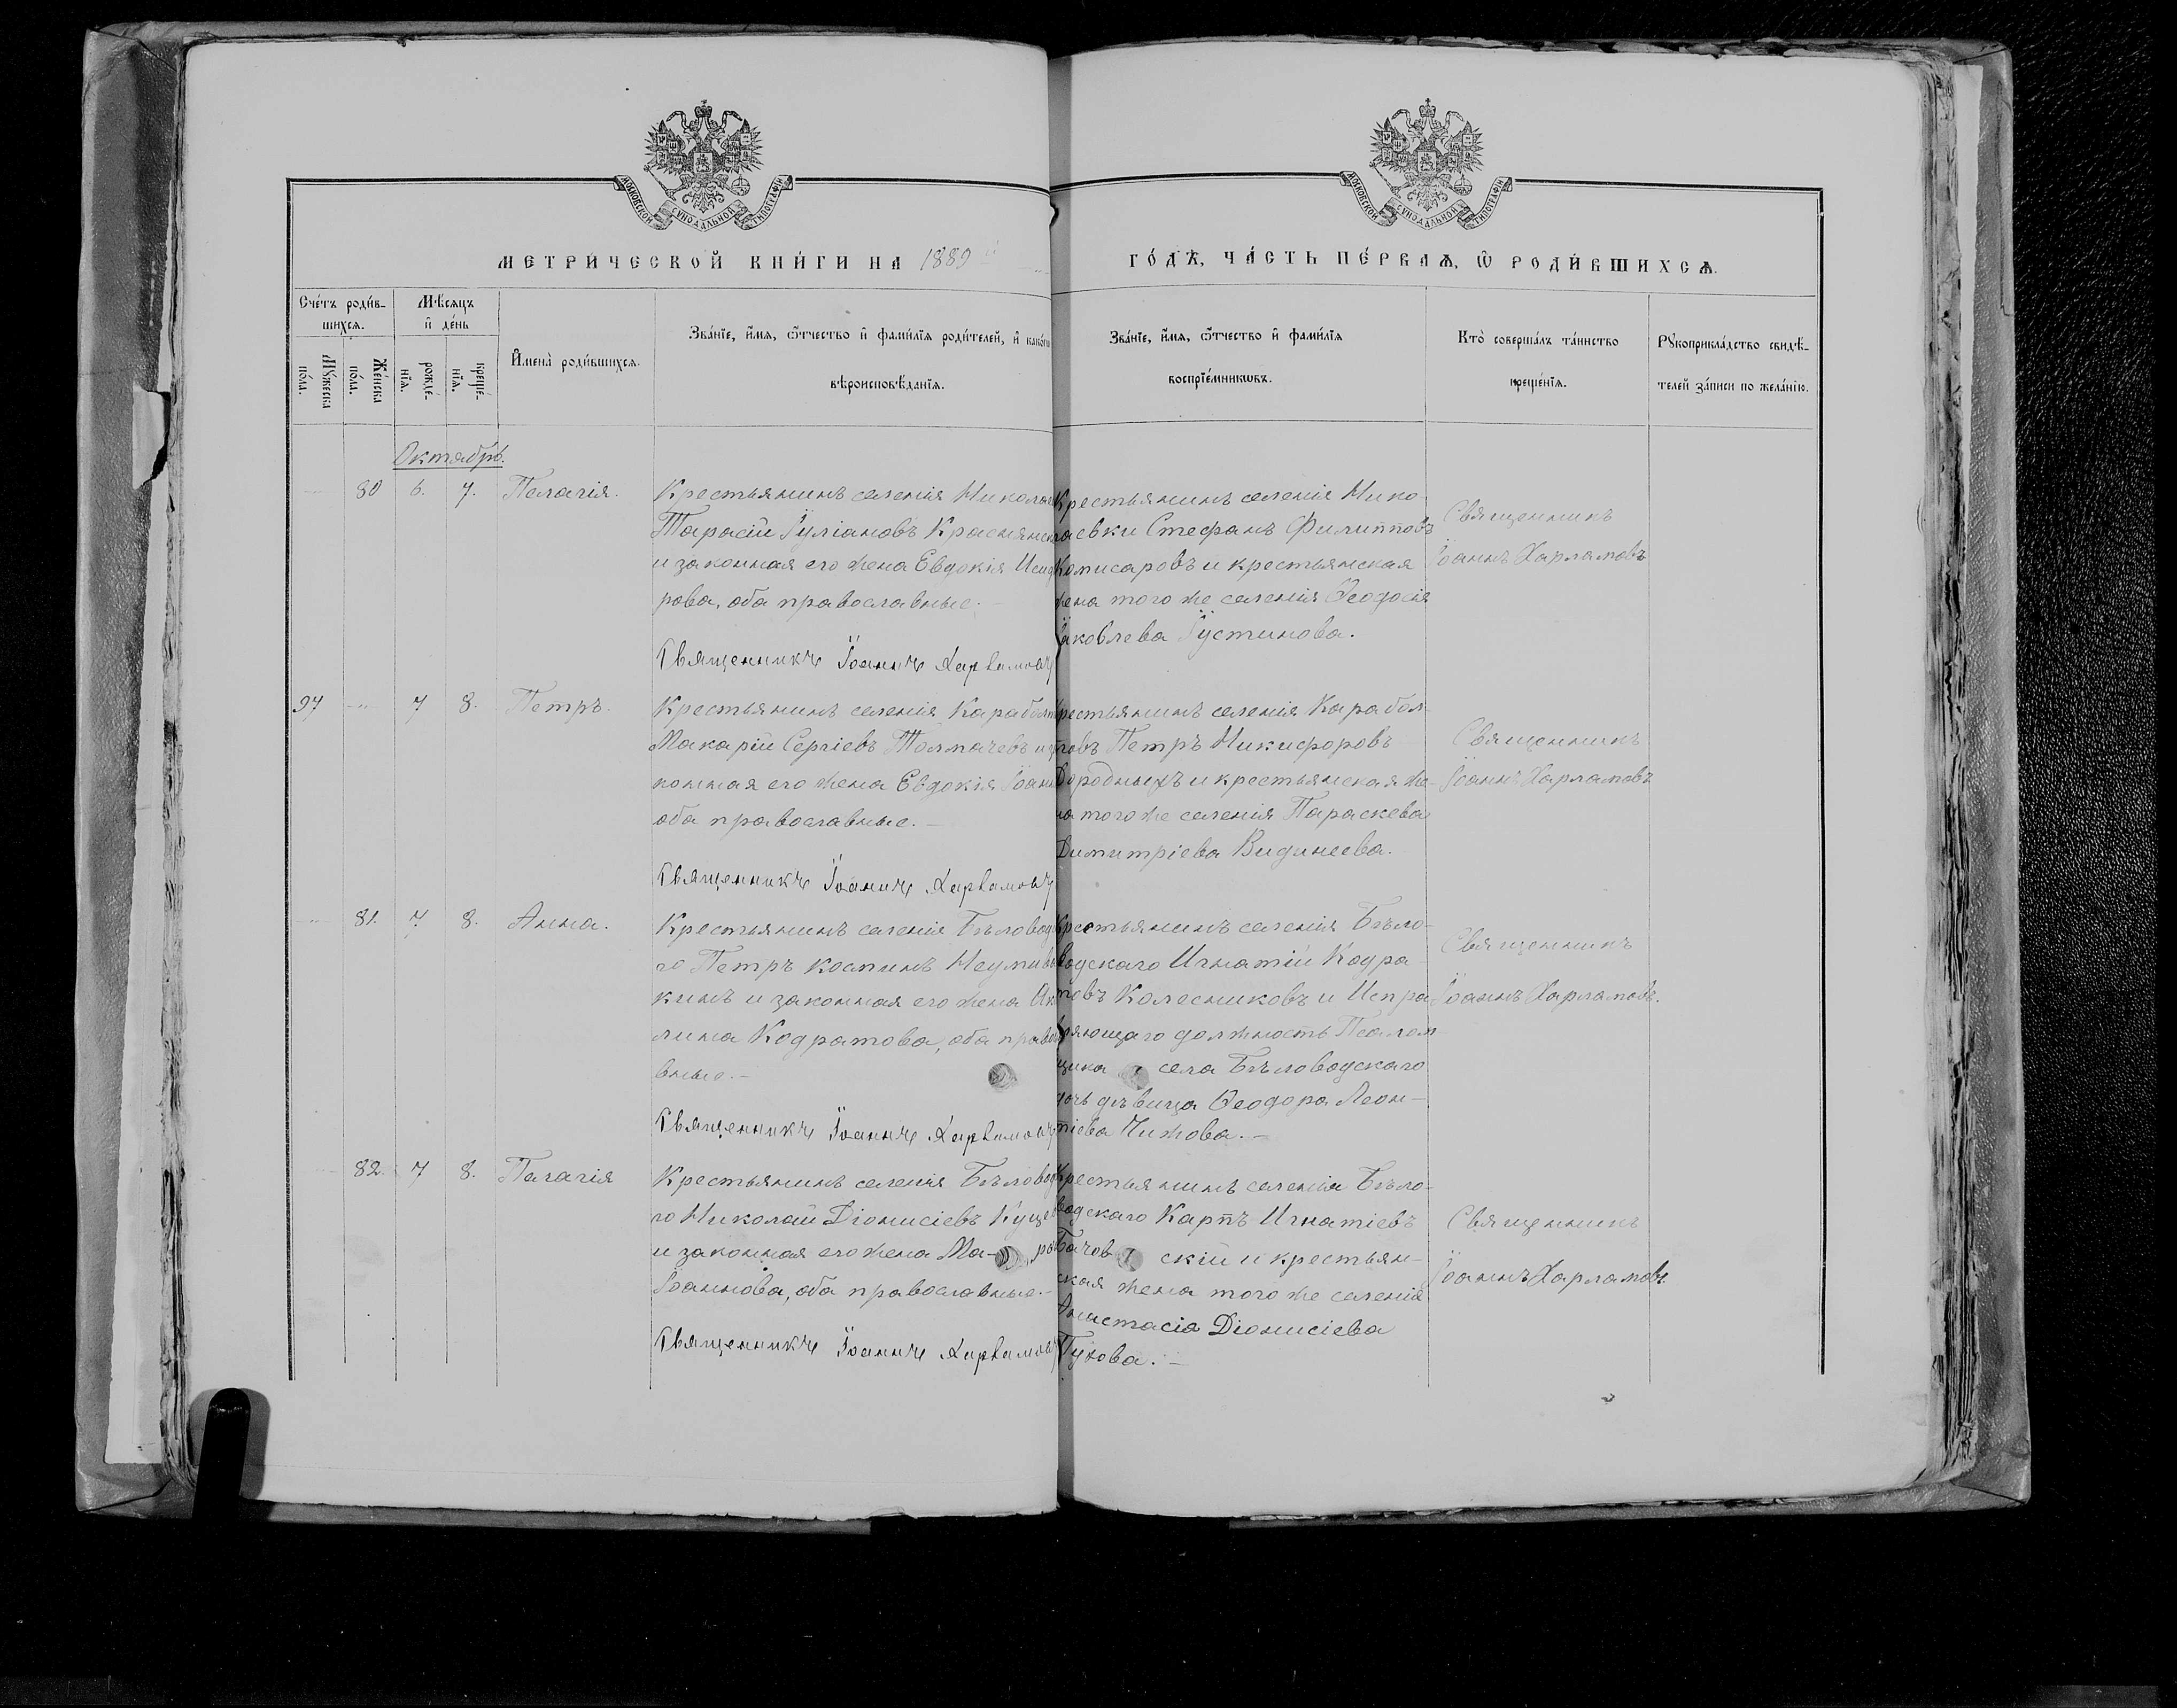 МОСКОВСКОЙ СѴНОДАЛЬНОЙ ТИПОГРАФІИ
МОСКОВСКОЙ СѴНОДАЛЬНОЙ ТИПОГРАФІИ
МЕТРИ́ЧЕСКОЙ КНИ́ГИ НА 1889 й
ГО́ДЪ, ЧА́СТЬ ПЕ́РВАѦ, Ѽ РОДИ́ВШИХСѦ.
Сче́тъ роди́в-
шихсѧ.
Мѣ́сѧцъ
и҆ де́нь
Мꙋ́жеска
по́ла.
Же́нска
по́ла.
рожде́-
нїѧ.
креще́-
нїѧ.
И҆мена̀ роди́вшихсѧ.
Зва́нїе, и҆́мѧ, ѻ҆́тчество и҆ фами́лїѧ роди́телей, и҆ како́гѡ
вѣроисповѣ́данїѧ.
Зва́нїе, и҆́мѧ, ѻ҆́тчество и҆ фами́лїѧ
воспрїе́мникѡвъ.
Кто̀ соверша́лъ та́инство
креще́нїѧ.
Рꙋкоприкла́дство свидѣ́-
телей за́писи по жела́нїю.
Октябрь.
80 6. 7. Пелагія.
Крестьянинъ селенія Никола
Тарасій Іуліановъ Краснянск
и законная его жена Евдокія Иси
рова, оба православные. –
Священникъ Іоаннъ Харламовъ
Крестьянинъ селенія Нико-
лаевки Стефанъ Филипповъ
Комисаровъ и крестьянская
жена того же селенія Ѳеодосія
Іаковлева Іустинова.
Священникъ
Іоаннъ Харламовъ
97 7 8. Петръ.
Крестьянинъ селенія Карабалт
Макарій Сергіевъ Толмачевъ и з
конная его жена Евдокія Іоанн
оба православные. –
Священникъ Іоаннъ Харламовъ
Крестьянинъ селенія Карабол-
товъ Петръ Никифоровъ
Дородныхъ и крестьянская же-
на того же селенія Параскева
Димитріева Видинеева.
Священникъ
Іоаннъ Харламовъ
81. 7. 8. Анна.
Крестьянинъ селенія Бѣловод
го Петръ Косминъ Неумыва
кинъ и законная его жена Ак
лина Кодратова, оба право
вные. –
Священникъ Іоаннъ Харламовъ
Крестьянинъ селенія Бѣло-
водскаго Игнатій Кодра-
товъ Колесниковъ и Испра
ляющаго должность Псалом
щика села Бѣловодскаго
дочь дѣвица Ѳеодора Леон-
тіева Чижова. –
Священникъ
Іоаннъ Харламовъ.
82. 7 8. Пелагія
Крестьянинъ селенія Бѣловод
го Николай Діонисіевъ Куце
и законная его жена Ма-
Іоаннова, оба православные. –
Священникъ Іоаннъ Харламовъ
Крестьянинъ селенія Бѣло-
водскаго Карпъ Игнатіевъ
скій и крестьян-
ская жена того же селенія
Анастасія Діонисіева
Гукова. –
Священникъ
Іоаннъ Харламовъ